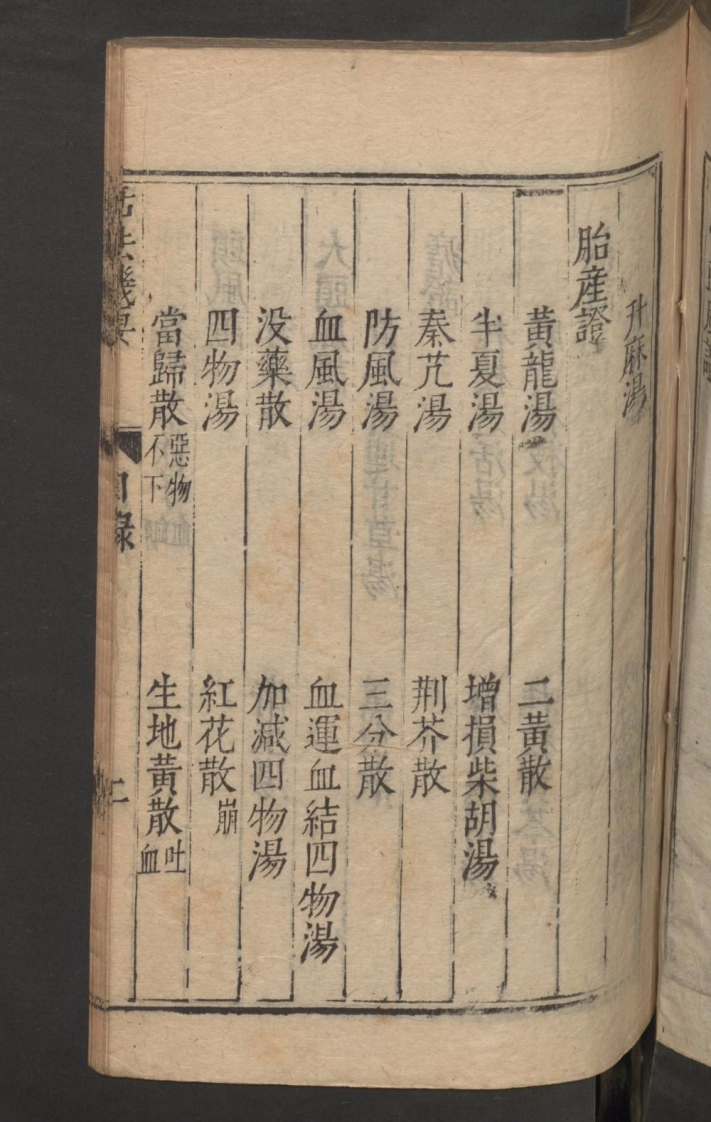 升麻湯
胎產證
黃龍湯　二黃散
半夏湯　增損柴胡湯
秦艽湯　荆芥散
防風湯　三分散
血風湯　血運血結四物湯
没藥散　加減四物湯
四物湯　紅花散崩
當歸散惡物不下　生地黃散吐血
活法機要　目錄　二